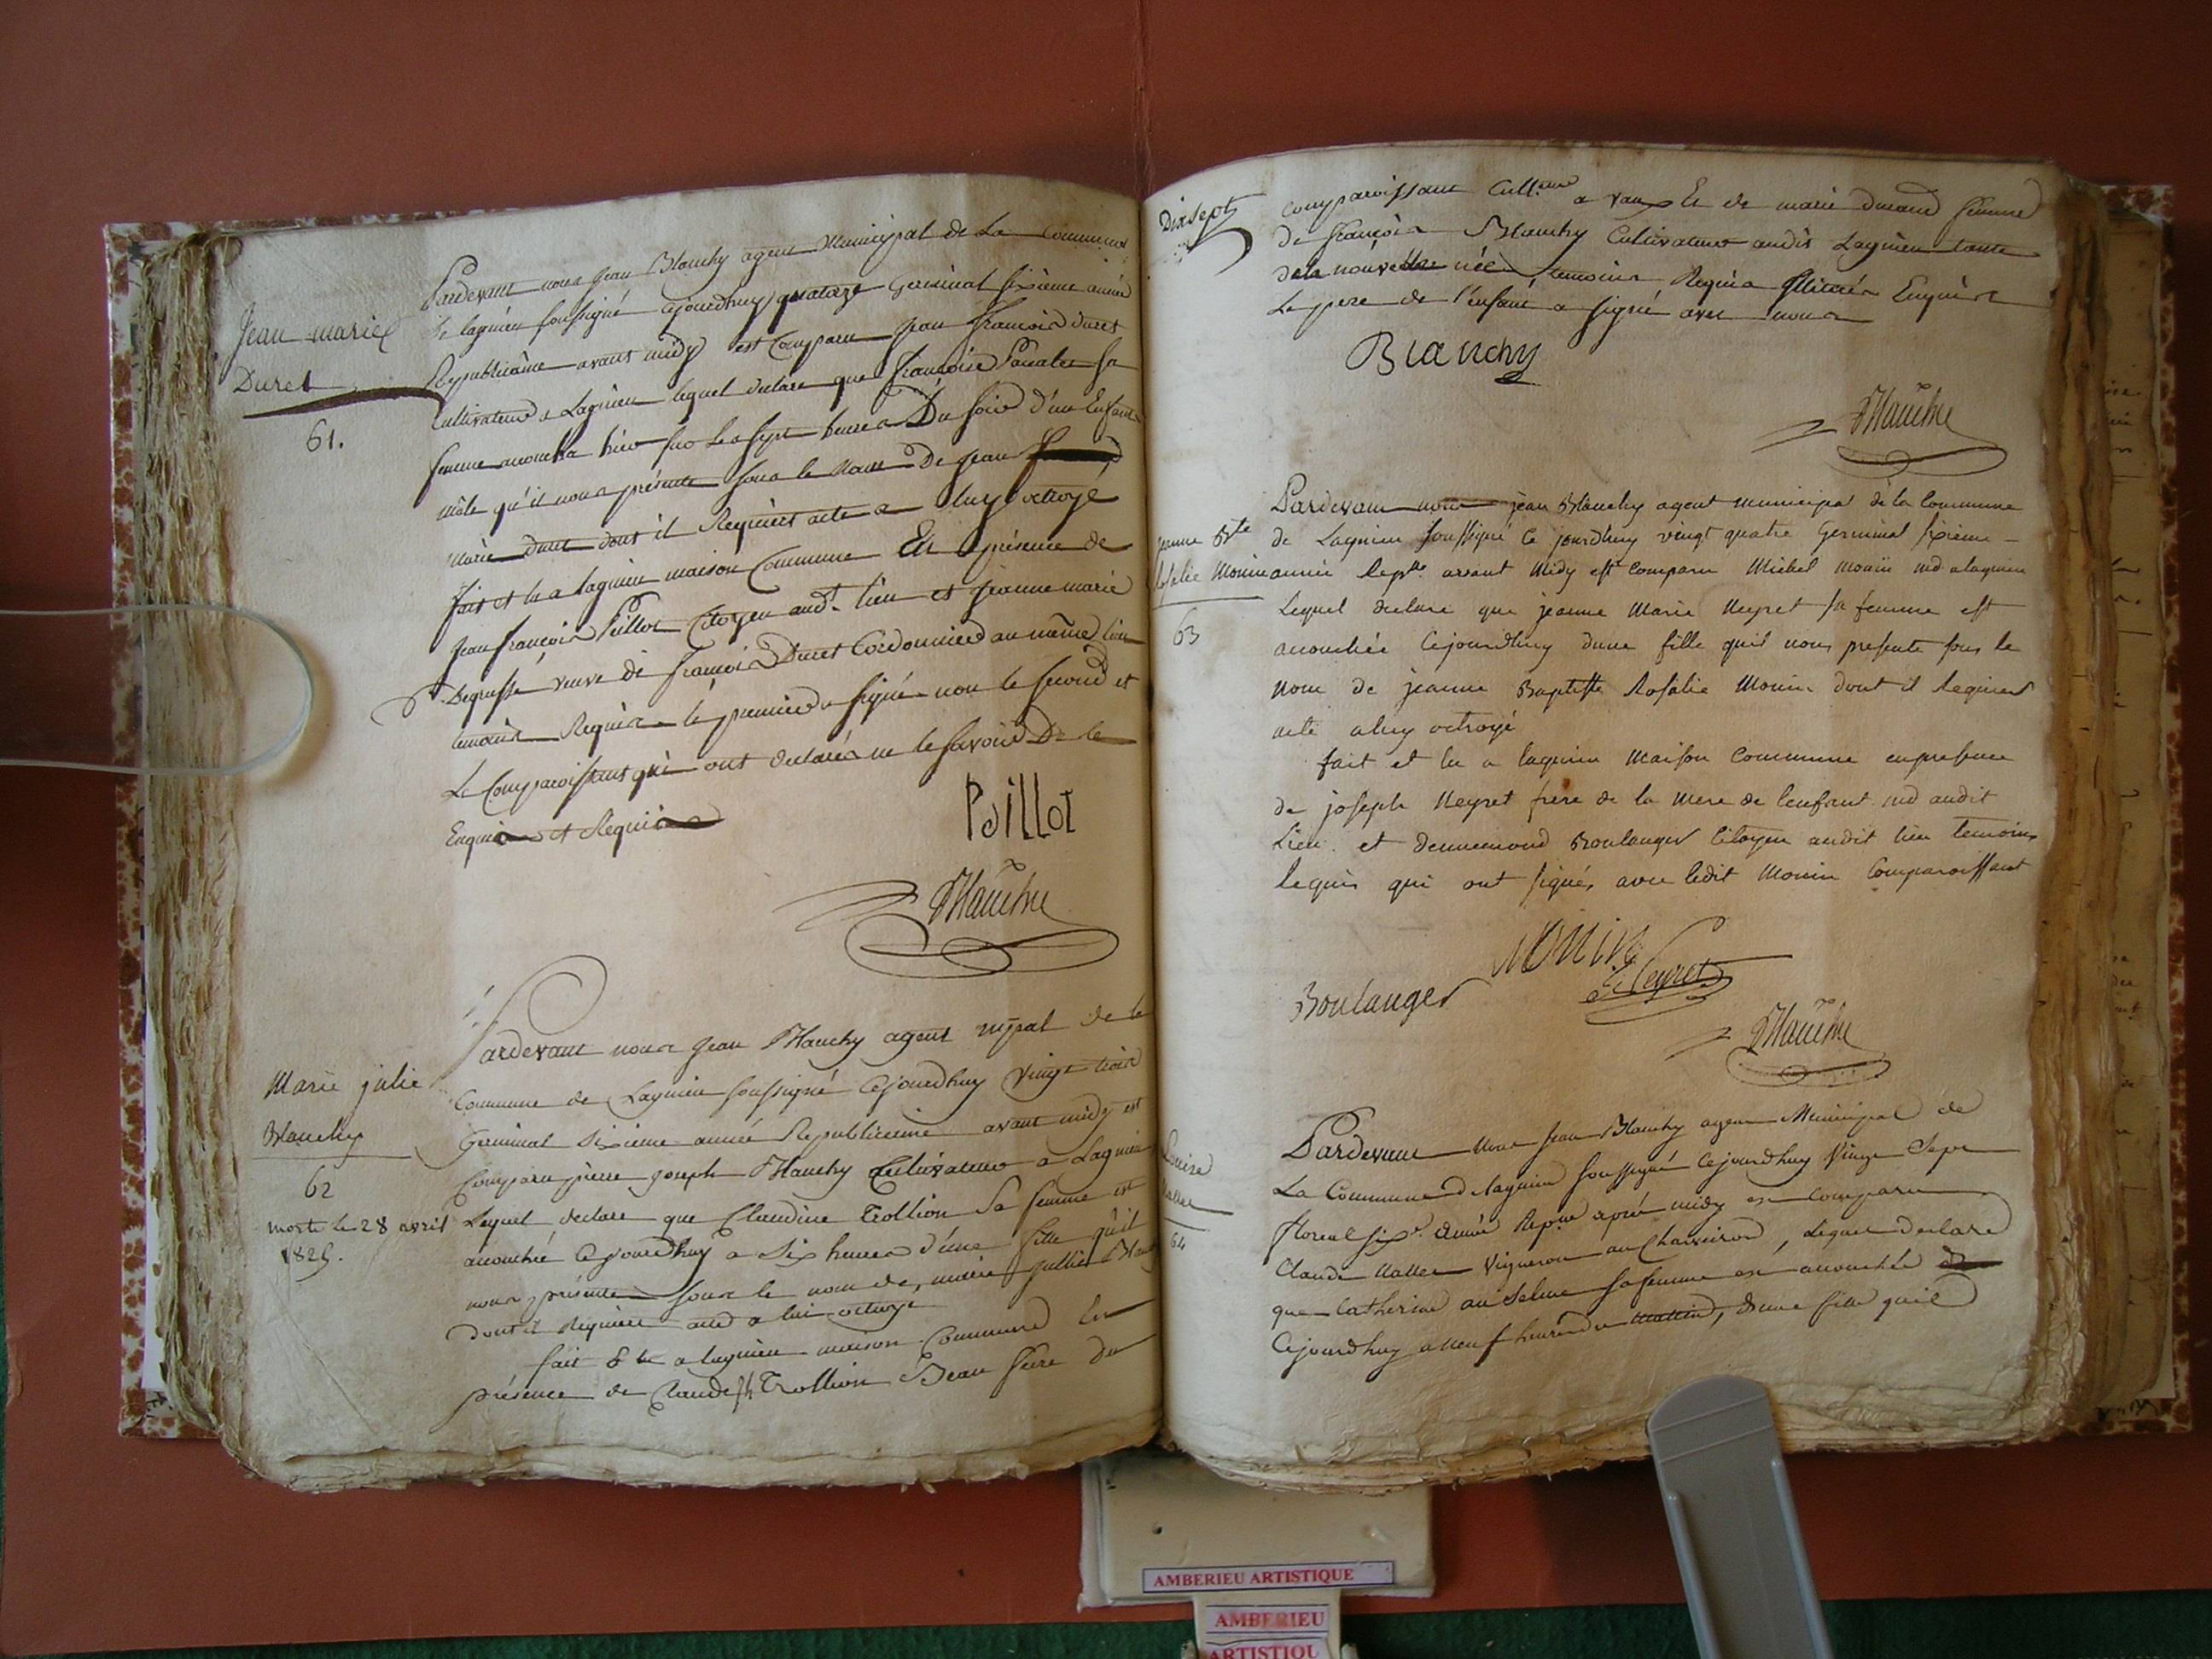 Jean marie
Duret
61.
Pardevant nous Jean Blanchy agent Municipal de La Commune
de lagnieu soussigné cejourdhuy quatorze Germinal sixième année
Republicaine avant midy est Comparu jean françois duret
Cultivateur a Lagnieu lequel declare que françoise sa
femme accoucha hier sur les sept heures Du soir d'un Enfant
mâle qu'il nous présente sous le nom De jean
marie duret dont il Requiert acte a luy octroyé
fait et lu a lagnieu maison Commune En présence de
Jean françois Paillot Citoyen audt. lieu et jeanne marie
Degrusse veuve de françois Duret Cordonnier au même lieu
temoins Requis le premier a signé non le second et
Le Comparoissant qui ont declarés ne le savoir De ce
Enquis et Requis
Paillot
Blanchy
Marie julie
Blanchy
62
morte le 28 avril
1825.
Pardevant nous Jean Blanchy agent mpal de la
Commune de Lagnieu soussigné Cejourdhuy vingt trois
Germinal sixieme année Republicaine avant midy est
Comparu pierre joseph Blanchy Cultivateur a Lagnieu
Lequel declare que Claudine Trollion Sa femme est
accouchée Cejourdhuy a six heures d'une fille qu'il
nous présente sous le nom de, marie jullie
dont il Requiere acte a lui octroyé
fait & lu a lagnieu maison Commune En
présence de Claude Trollion Beau frere du
Dixsept
comparoissant Cult.eur a vaux Et de marie durand femme
De françois Blanchy Cultivateur audit Lagnieu tante
dela nouvelle née temoins Requis illitérés Enquis
Le pere de l'enfant a signé avec nous
Blanchy
Blanchy
jeanne Bte
Rosalie Monin
63
Pardevant nous jean Blanchy agent municipal de la Commune
de Lagnieu soussigné Ce jourdhuy vingt quatre Germinal sixieme
année Repbe. avant Midy est Comparu Michel Monin md a lagnieu
Lequel declare que jeanne Marie Neyret sa femme est
accouchée Cejourdhuy dune fille quil nous presente sous le
nom de jeanne Baptiste Rosalie Monin dont il Requiert
acte a luy octroyé
fait et lu a lagnieu Maison Commune en presence
de joseph Neyret frere de la Mere de lenfant md audit
Lieu et Dennemond Boulanger Citoyen audit lieu temoins
Requis qui ont signés avec ledit Monin Comparoissant
Monin
Boulanger
Neyret
Blanchy
Louise
64
Pardevant Nous Jean Blanchy agent Municipal de
La Commune de lagnieu soussigné Cejourdhuy Vingt Sept
floreal six.e année après midy est Comparu
Claude Vigneron au , Lequel declare
que Catherine sa femme est accouchée
Cejourdhuy a neuf heures du matin, d'une fille quil
AMBERIEU ARTISTIQUE
AMBERIEU
ARTISTIQU